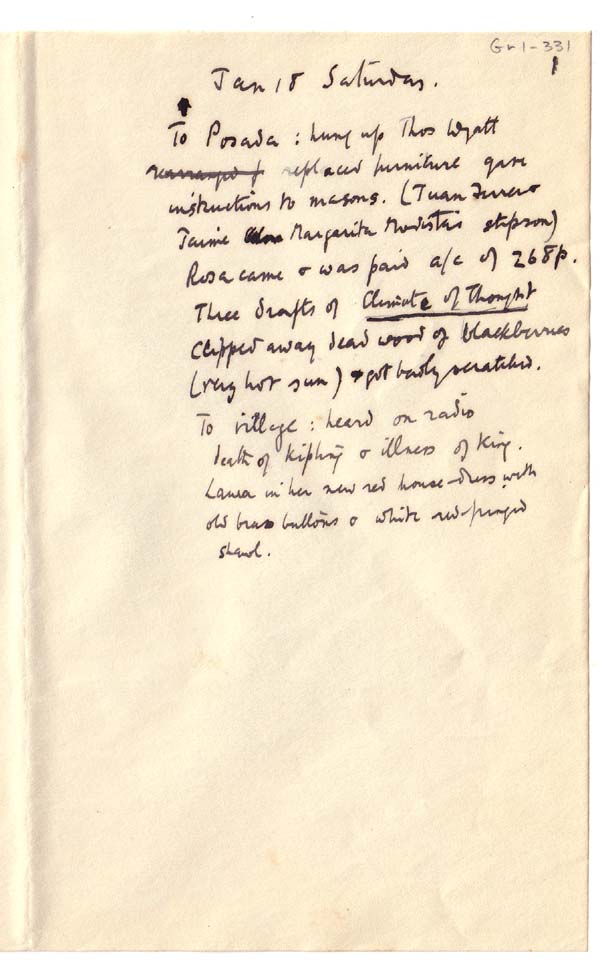 Gr 1-331
1
Jan 18 Saturday.
To Posada: hung up Thos Wyatt
rearranged f replaced furniture gave
instructions to masons. (Juan Ferrer &
Jaime Margarita Modistas stepson)
Rosa came & was paid a/c of 268p.
Three drafts of Climate of Thought
Clipped away dead wood of blackberries
(very hot sun) & got badly scratched.
To village: heard on radio
death of Kipling & illness of King.
Laura in her new red house-dress with
old brass buttons & white red-fringed
shawl.